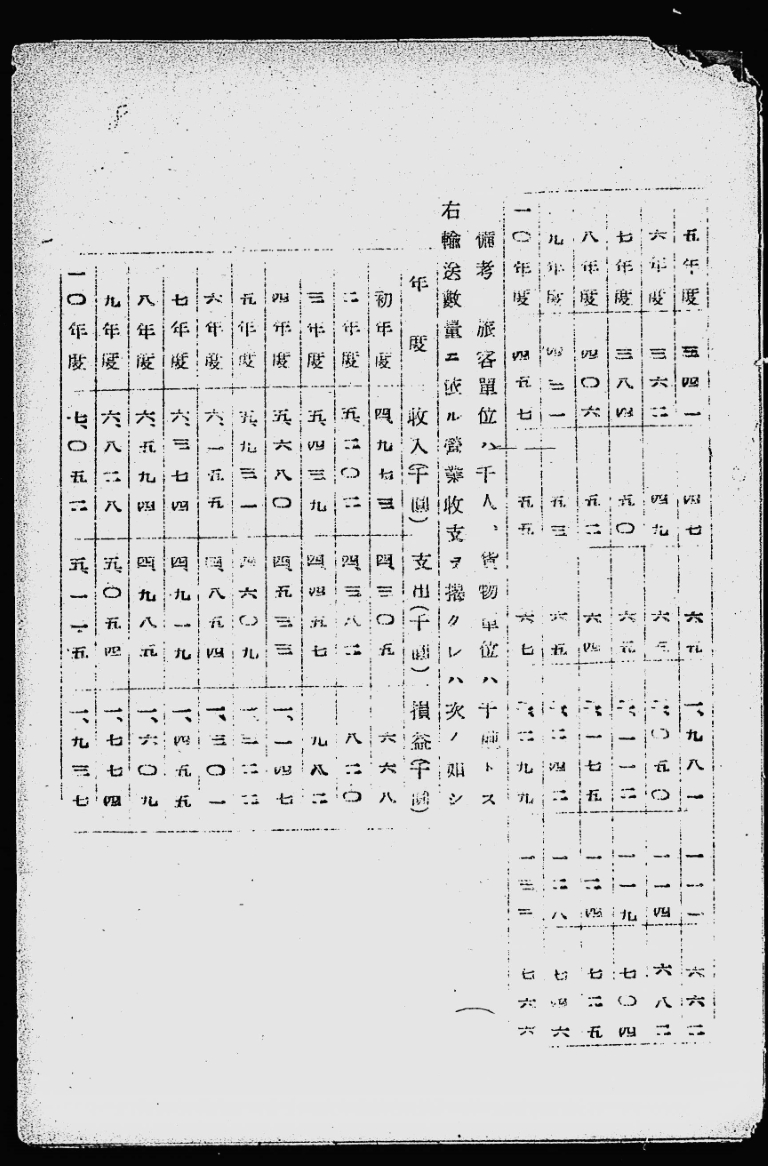 五年度 三四一 四七 一、九八一 一一一 六六二
六年度 三六二 四九 二、〇五〇 一一四 六八二
七年度 三八四 五〇 二、一一二 一一九 七〇四
八年度 四〇六 五二 六四 二、一七五 一二四 七二五
九年度 四三一 五三 六五 二、二四二 一二八 七四六
一〇年度 四五七 五五 六七 二、二九九 一三三 七六六
備考 旅客單位ハ千人、貨物單位ハ千噸トス
右輸送數量ニ依ル營業收支ヲ揭クレハ次ノ如シ
年度 收入(千圓) 支出(千圓) 損益(千圓)
初年度 四、九七三 四、三〇五 六六八
二年度 五、二〇二 四、三八二 八二〇
三年度 五、四三九 四、四五七 九八二
四年度 五、六八〇 四、五三三 一、一四七
五年度 五、九三一 四、六〇九 一、三二二
六年度 六、一五五 四、八五四 一、三〇一
七年度 六、三七四 四、九一九 一、四五五
八年度 六、五九四 四、九八五 一、六〇九
九年度 六、八二八 五、〇五四 一、七七四
一〇年度 七、〇五二 五、一一五 一、九三七